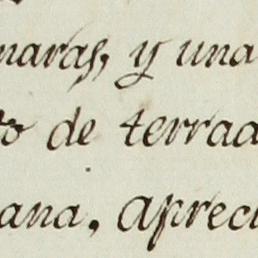 maras, y una
to de terrad
ana. apreci